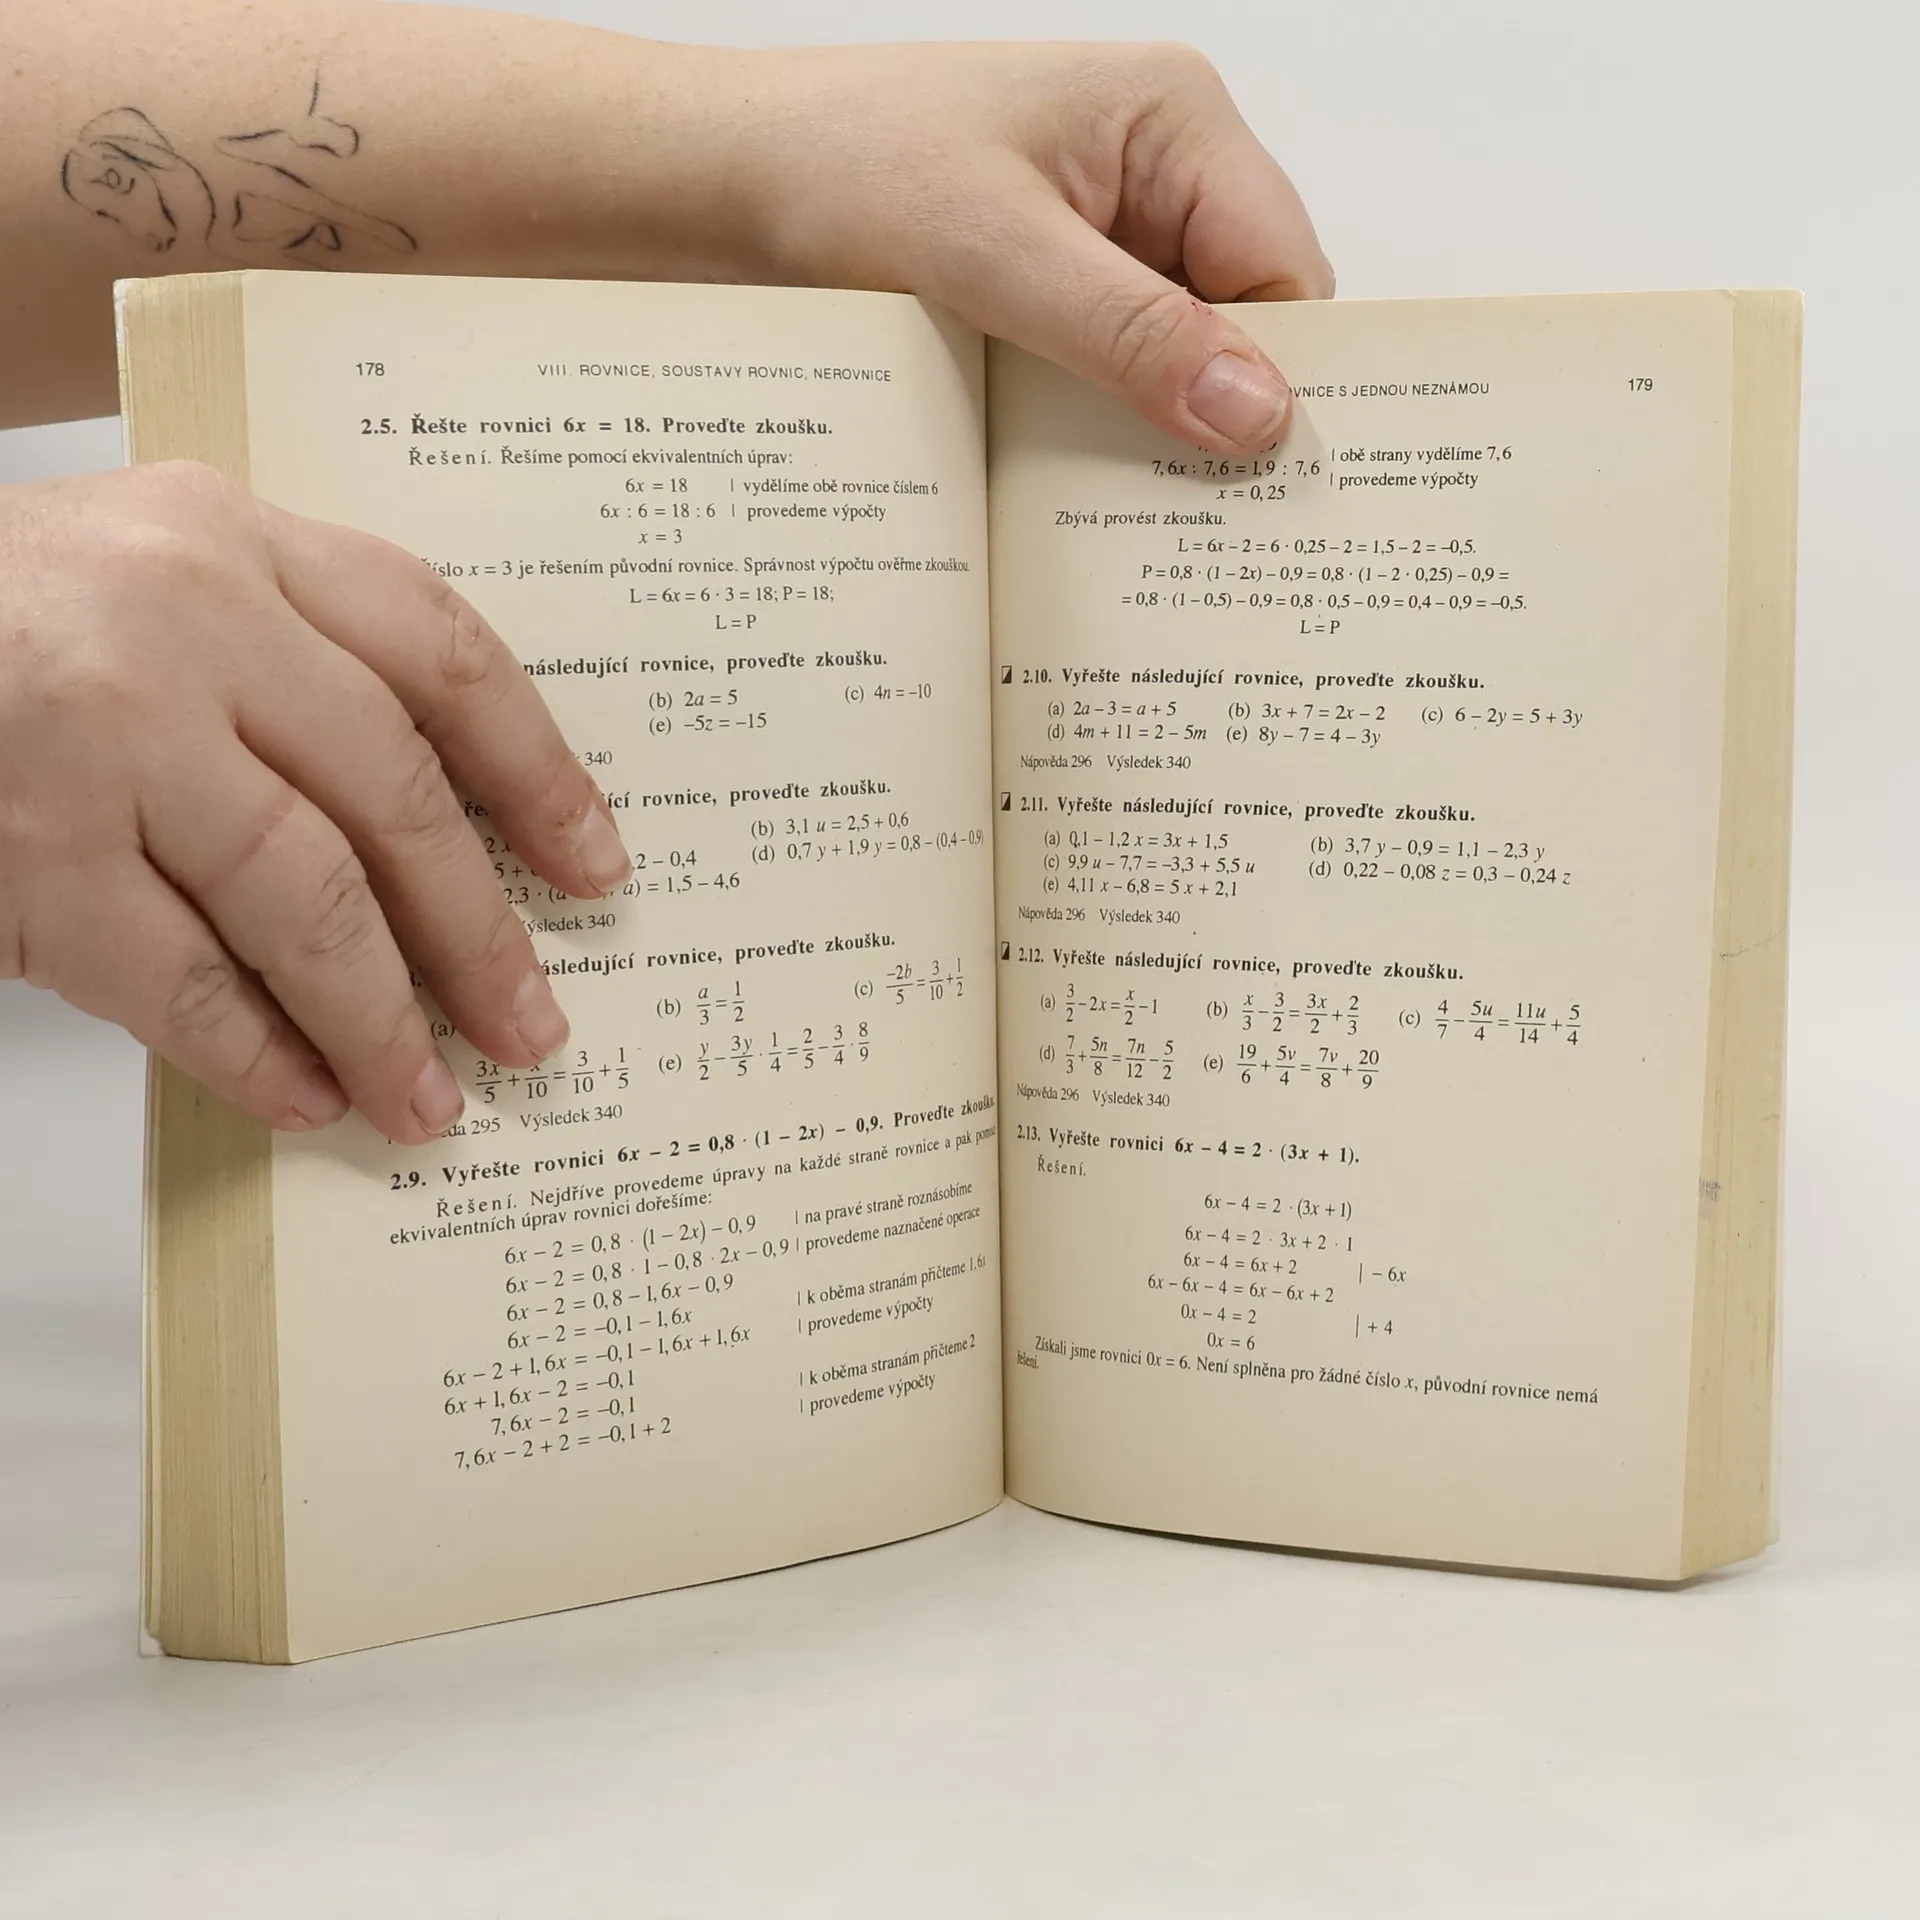 178
VIII. ROVNICE, SOUSTAVY ROVNIC, NEROVNICE
2.5. Řešte rovnici 6x = 18. Proveďte zkoušku.
Řešení. Řešíme pomocí ekvivalentních úprav:
6x = 18 | vydělíme obě rovnice číslem 6
6x : 6 = 18 : 6 | provedeme výpočty
x = 3
x = 3 je řešením původní rovnice. Správnost výpočtu ověřme zkouškou.
L = 6x = 6 · 3 = 18; P = 18;
L = P
následující rovnice, proveďte zkoušku.
(b) 2a = 5 (c) 4n = –10
(e) –5z = –15
340
rovnice, proveďte zkoušku.
(b) 3,1 u = 2,5 + 0,6
,2 – 0,4 (d) 0,7 y + 1,9 y = 0,8 – (0,4 – 0,9)
2,3 · (a a) = 1,5 – 4,6
Výsledek 340
následující rovnice, proveďte zkoušku.
(a) (b) a/3 = 1/2 (c) –2b/5 = 3/10 + 1/2
3x/5 + x/10 = 3/10 + 1/5 (e) y/2 – 3y/5 · 1/4 = 2/5 – 3/4 · 8/9
295 Výsledek 340
2.9. Vyřešte rovnici 6x – 2 = 0,8 · (1 – 2x) – 0,9. Proveďte zkoušku.
Řešení. Nejdříve provedeme úpravy na každé straně rovnice a pak pomocí
ekvivalentních úprav rovnici dořešíme:
6x – 2 = 0,8 · (1 – 2x) – 0,9 | na pravé straně roznásobíme
6x – 2 = 0,8 · 1 – 0,8 · 2x – 0,9 | provedeme naznačené operace
6x – 2 = 0,8 – 1,6x – 0,9
6x – 2 = –0,1 – 1,6x | k oběma stranám přičteme 1,6x
6x – 2 + 1,6x = –0,1 – 1,6x + 1,6x | provedeme výpočty
6x + 1,6x – 2 = –0,1
7,6x – 2 = –0,1 | k oběma stranám přičteme 2
7,6x – 2 + 2 = –0,1 + 2 | provedeme výpočty
S JEDNOU NEZNÁMOU
179
| obě strany vydělíme 7,6
7,6x : 7,6 = 1,9 : 7,6 | provedeme výpočty
x = 0,25
Zbývá provést zkoušku.
L = 6x – 2 = 6 · 0,25 – 2 = 1,5 – 2 = –0,5.
P = 0,8 · (1 – 2x) – 0,9 = 0,8 · (1 – 2 · 0,25) – 0,9 =
= 0,8 · (1 – 0,5) – 0,9 = 0,8 · 0,5 – 0,9 = 0,4 – 0,9 = –0,5.
L = P
2.10. Vyřešte následující rovnice, proveďte zkoušku.
(a) 2a – 3 = a + 5 (b) 3x + 7 = 2x – 2 (c) 6 – 2y = 5 + 3y
(d) 4m + 11 = 2 – 5m (e) 8y – 7 = 4 – 3y
Nápověda 296 Výsledek 340
2.11. Vyřešte následující rovnice, proveďte zkoušku.
(a) 0,1 – 1,2 x = 3x + 1,5 (b) 3,7 y – 0,9 = 1,1 – 2,3 y
(c) 9,9 u – 7,7 = –3,3 + 5,5 u (d) 0,22 – 0,08 z = 0,3 – 0,24 z
(e) 4,11 x – 6,8 = 5 x + 2,1
Nápověda 296 Výsledek 340
2.12. Vyřešte následující rovnice, proveďte zkoušku.
(a) 3/2 – 2x = x/2 – 1 (b) x/3 – 3/2 = 3x/2 + 2/3 (c) 4/7 – 5u/4 = 11u/14 + 5/4
(d) 7/3 + 5n/8 = 7n/12 – 5/2 (e) 19/6 + 5v/4 = 7v/8 + 20/9
Nápověda 296 Výsledek 340
2.13. Vyřešte rovnici 6x – 4 = 2 · (3x + 1).
Řešení.
6x – 4 = 2 · (3x + 1)
6x – 4 = 2 · 3x + 2 · 1
6x – 4 = 6x + 2 | – 6x
6x – 6x – 4 = 6x – 6x + 2
0x – 4 = 2 | + 4
0x = 6
Získali jsme rovnici 0x = 6. Není splněna pro žádné číslo x, původní rovnice nemá
řešení.